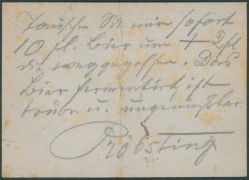 Tauschen Sie mir sofort
10 fl. Bier um + 2 fl
die weggegossen. Das
Bier fermentirt ist
trübe u. ungeniessbar.
Pröbsting